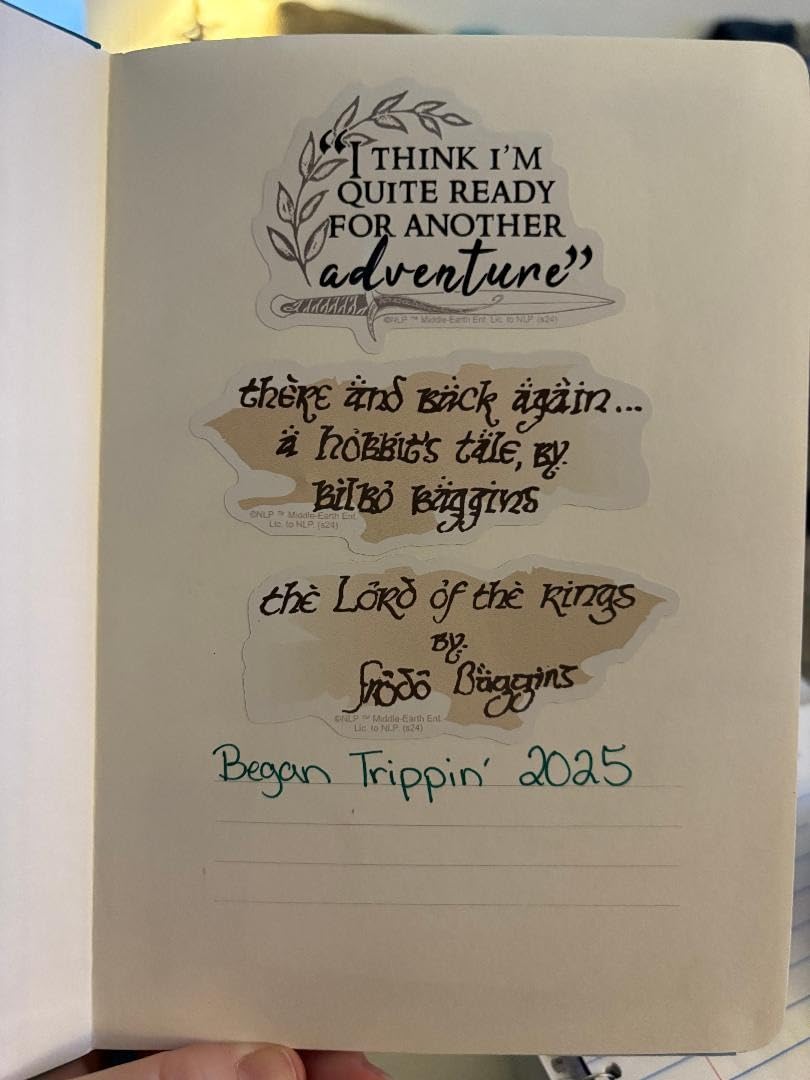 “I THINK I’M
QUITE READY
FOR ANOTHER
adventure”
©NLP ™ Middle-Earth Ent. Lic. to NLP (s24)
thère änd bäck ägäin...
ä hobbit's täle, by
Bilbo Bäggins
©NLP ™ Middle-Earth Ent.
Lic. to NLP. (s24)
thè Lord of thè Rings
by
frodo Bäggins
©NLP ™ Middle-Earth Ent.
Lic. to NLP. (s24)
Began Trippin' 2025